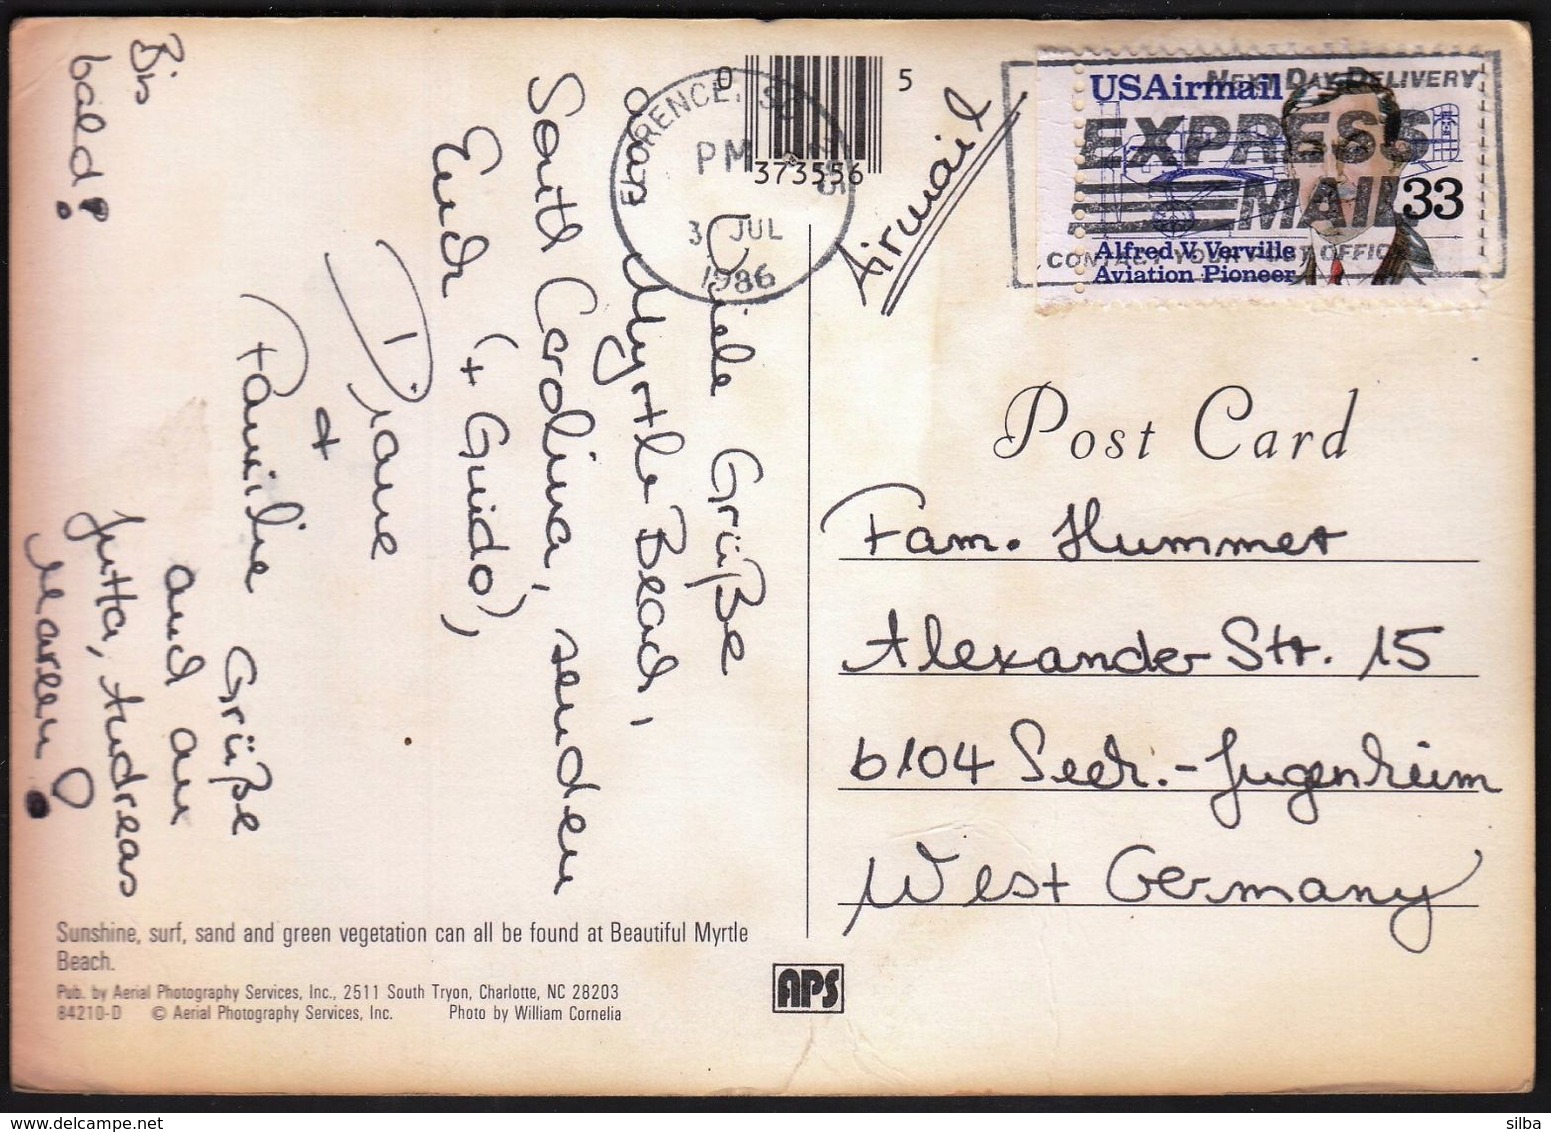 Viele Grüße
aus Myrtle Beach,
South Carolina, senden
Euch (+ Guido),
Diane
+
Familie
Grüße
auch an
Jutta, Andreas
Mareen!
Bis
bald!
0 5
373556
FLORENCE, SC
PM
3 JUL
1986
Airmail
NEXT DAY DELIVERY
EXPRESS
MAIL
CONTACT YOUR POST OFFICE
USAirmail
33
Alfred V. Verville
Aviation Pioneer
Post Card
Fam. Hummer
Alexander-Str. 15
6104 Seeh.-Jugenheim
West Germany
Sunshine, surf, sand and green vegetation can all be found at Beautiful Myrtle
Beach.
Pub. by Aerial Photography Services, Inc., 2511 South Tryon, Charlotte, NC 28203
84210-D © Aerial Photography Services, Inc. Photo by William Cornelia
APS
silba